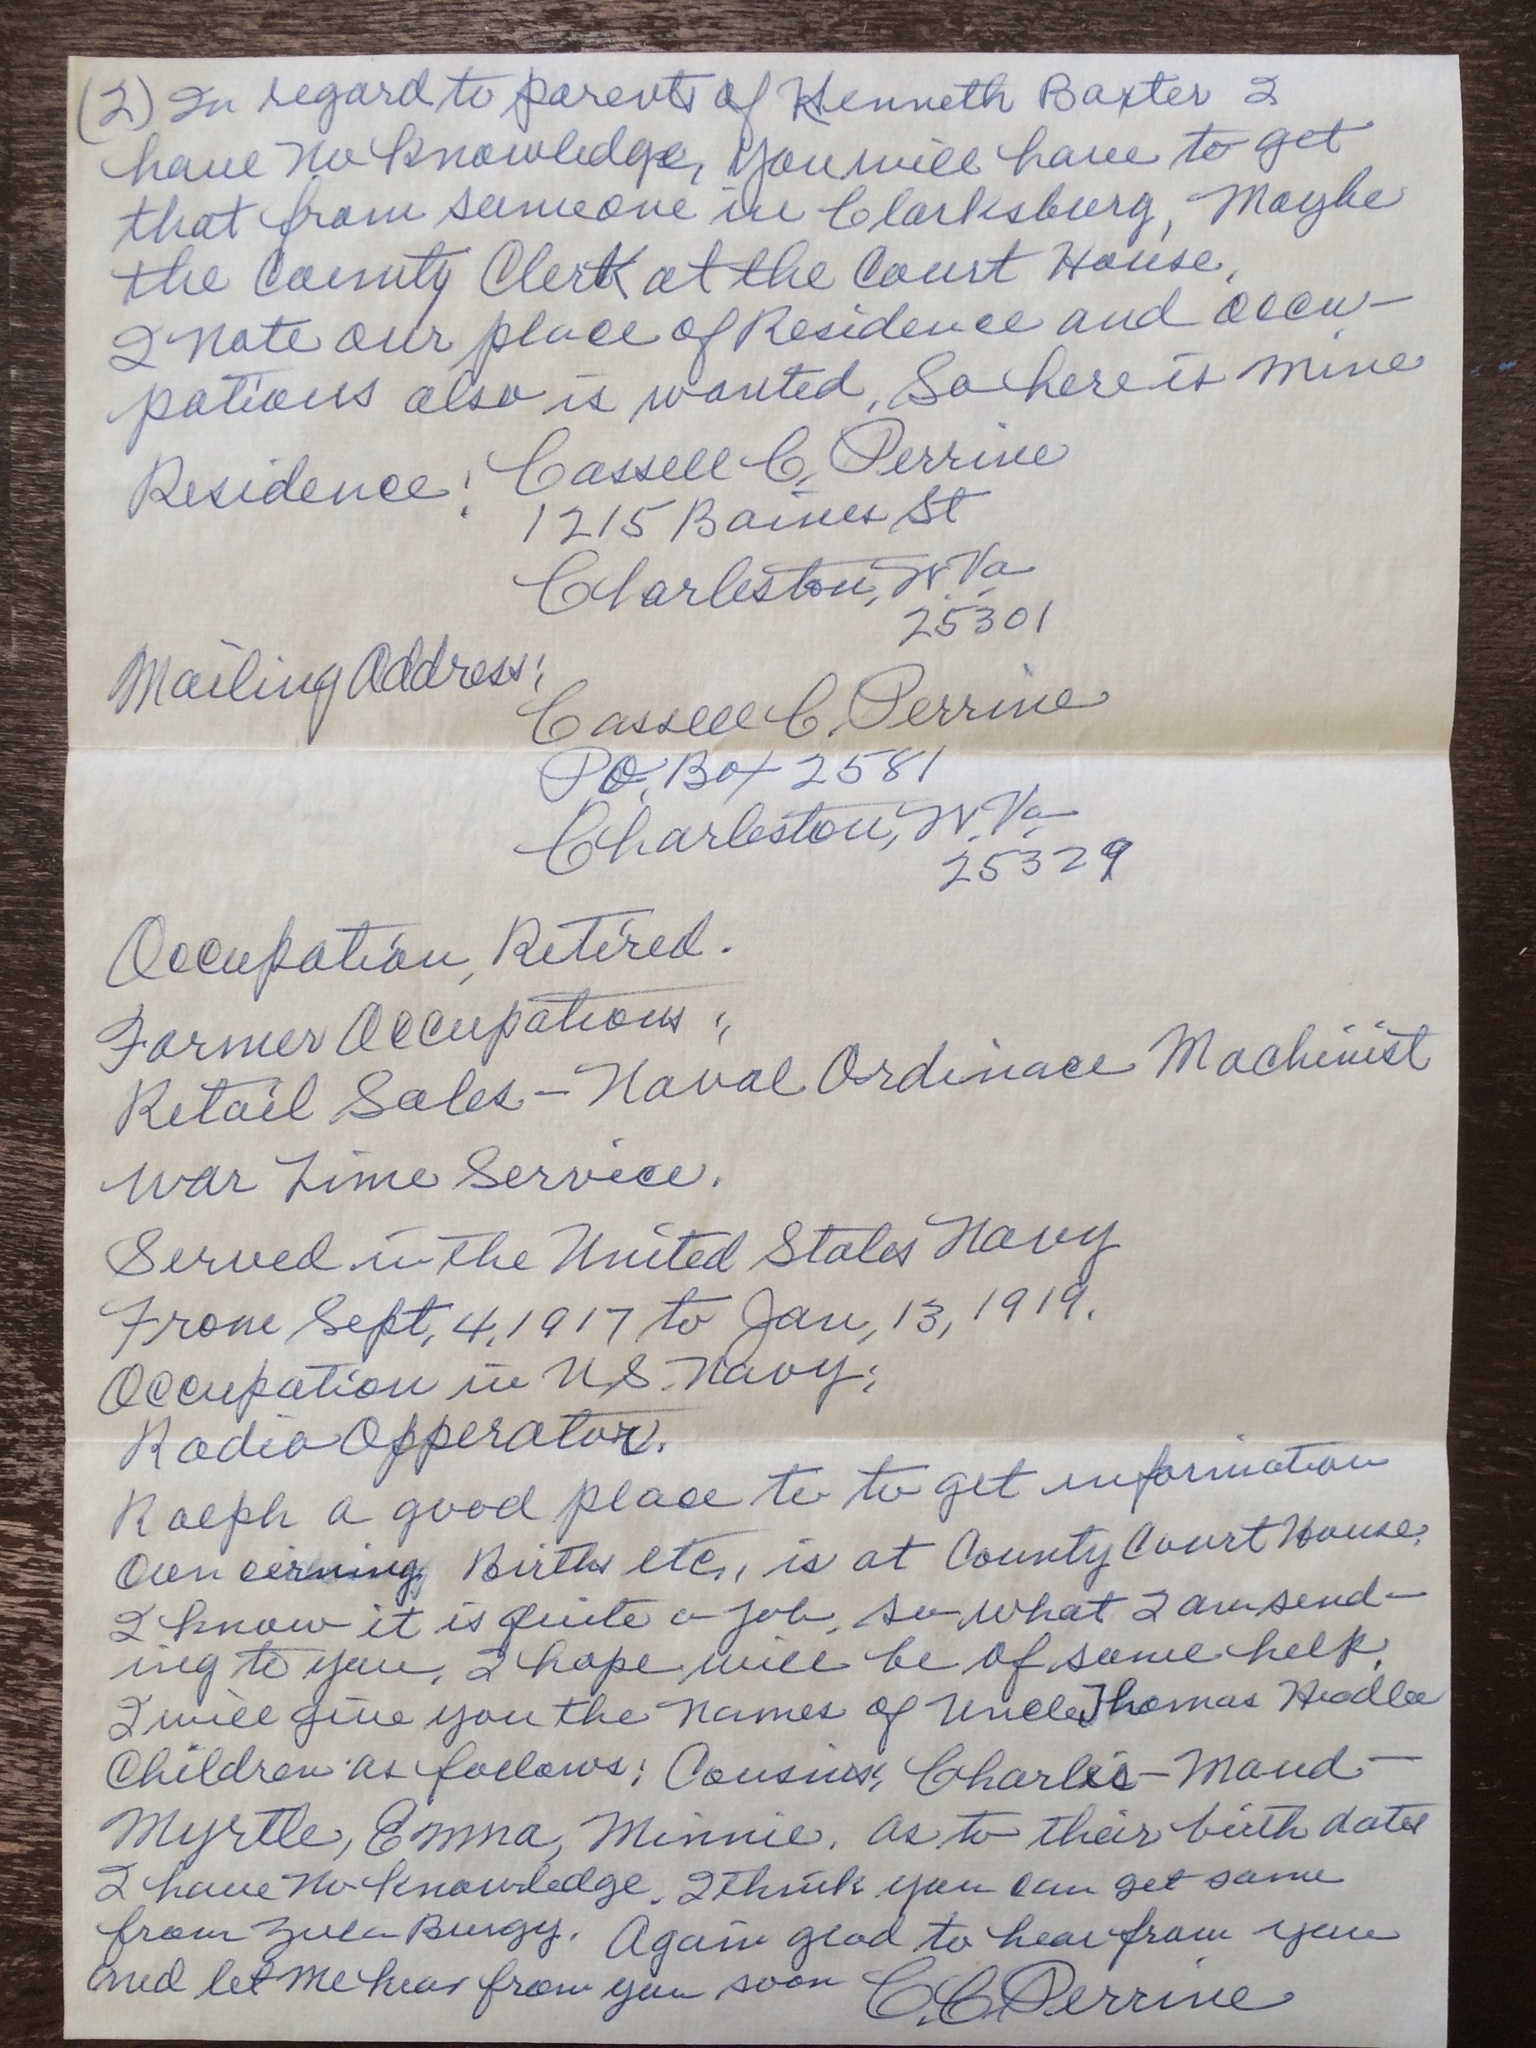 (2) In regard to parents of Kenneth Baxter I
have no knowledge, you will have to get
that from someone in Clarksburg, Maybe
the County Clerk at the Court House.
I note our place of Residence and occu-
pations also is wanted, So here is mine
Residence: Cassell C. Perrine
1215 Baines St
Charleston, W. Va
25301
Mailing Address:
Cassell C. Perrine
P.O. Box 2581
Charleston, W. Va.
25329
Occupation, Retired.
Former Occupations:
Retail Sales - Naval Ordinace Machinist
War Time Service.
Served in the United States Navy
From Sept, 4, 1917 to Jan, 13, 1919.
Occupation in U.S. Navy:
Radio Opperator.
Ralph a good place to to get information
concirning Births etc., is at County Court House.
I know it is quite a job, so what I am send-
ing to you, I hope will be of some help.
I will give you the names of Uncle Thomas
Children as follows: Cousins: Charlie - Maud -
Myrtle, Emma, Minnie. as to their birth dates
I have no knowledge. I think you can get some
from Burgy. Again glad to hear from you
and let me hear from you soon C.C. Perrine